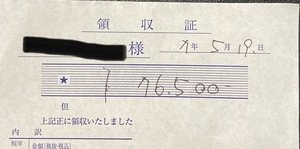 領収証
様 年5月19日
★ 76,500-
但
上記正に領収いたしました
内訳
税率 金額(税抜・税込)